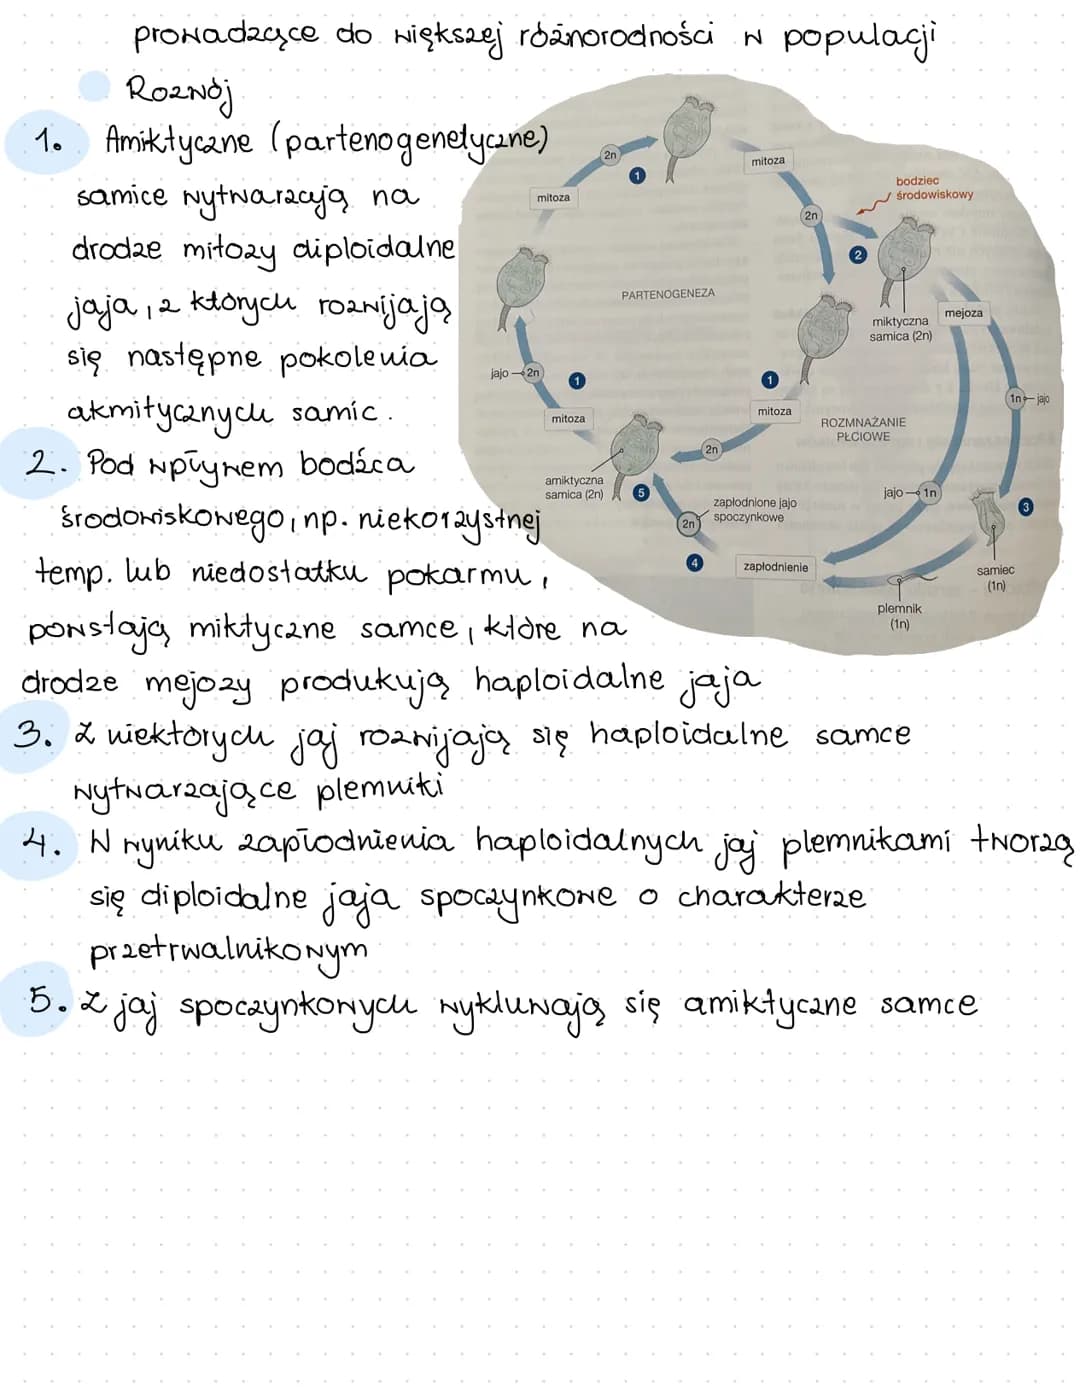 prowadzące do większej różnorodności w populacji
Rozwój
1. Amiktyczne (partenogenetyczne)
samice wytwarzają na
drodze mitozy diploidalne
jaja, z których rozwijają
się następne pokolenia
akmitycznych samic.
2. Pod wpływem bodźca
środowiskowego, np. niekorzystnej
temp. lub niedostatku pokarmu,
powstają miktyczne samce, które na
drodze mejozy produkują haploidalne jaja
3. Z niektórych jaj rozwijają się haploidalne samce
wytwarzające plemniki
4. W wyniku zapłodnienia haploidalnych jaj plemnikami tworzą
się diploidalne jaja spoczynkowe o charakterze
przetrwalnikowym
5. Z jaj spoczynkowych wykluwają się amiktyczne samce
2n
1
mitoza
mitoza
2n
bodziec
środowiskowy
2
PARTENOGENEZA
miktyczna
samica (2n)
mejoza
jajo 2n
1
mitoza
1
mitoza
ROZMNAŻANIE
PŁCIOWE
1n jajo
2n
amiktyczna
samica (2n)
5
zapłodnione jajo
spoczynkowe
2n
jajo 1n
3
4
zapłodnienie
samiec
(1n)
plemnik
(1n)